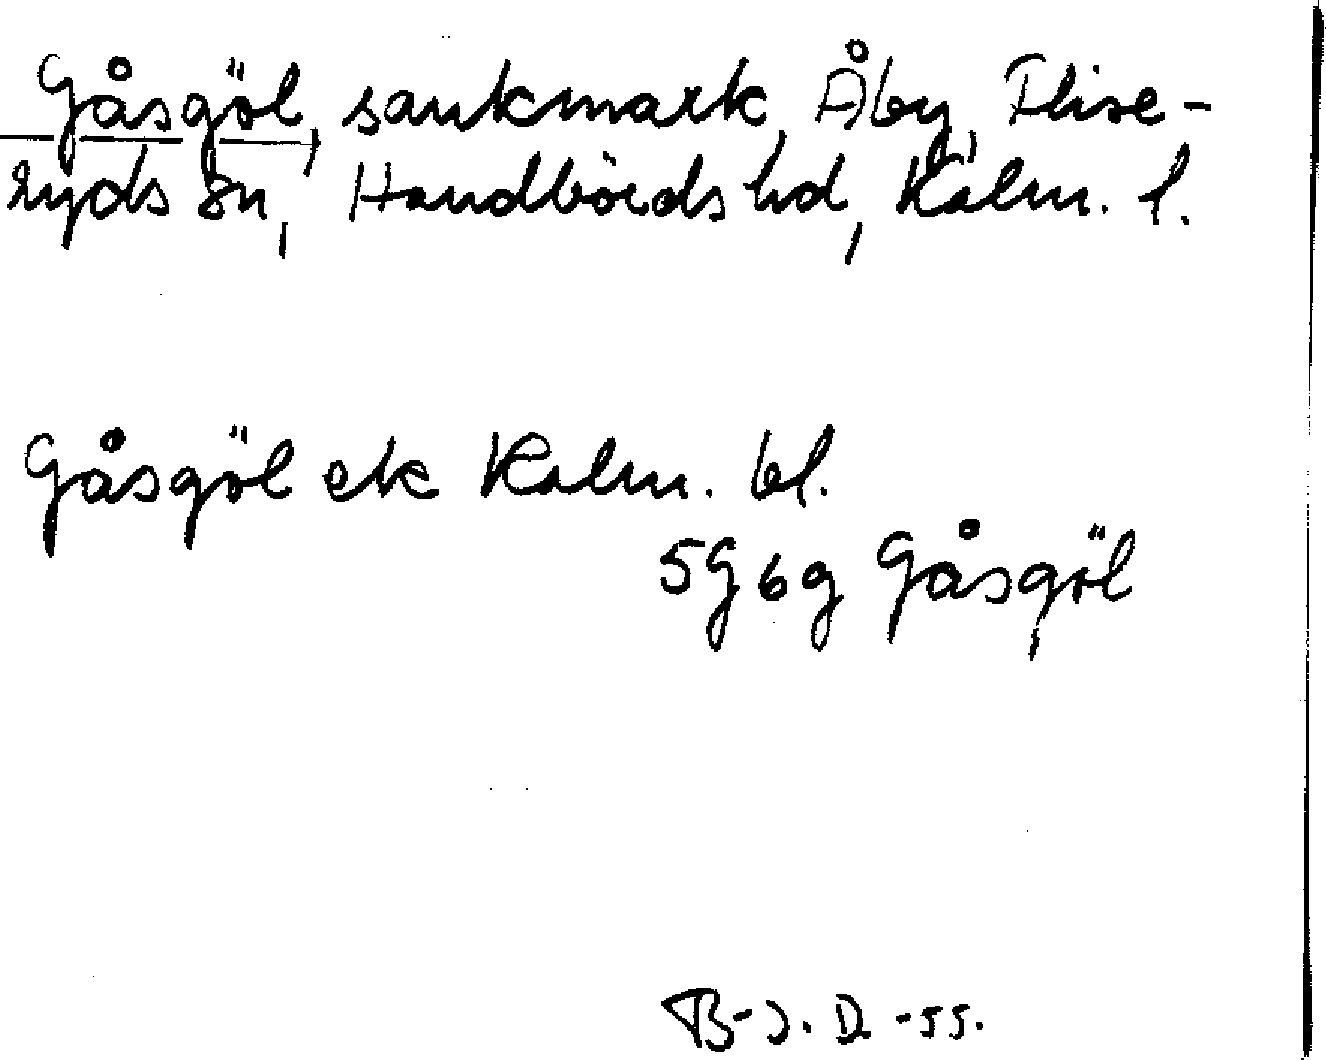 Gåsgöl, sankmark, Åby, Flise-
ryds sn, Handbörds hd, Kalm. l.
Gåsgöl ek Kalm. bl.
5G6g Gåsgöl
B-J. D. -55.